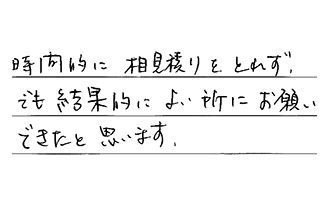 時間的に 相見積りを とれず、
でも 結果的に よい所に お願い
できたと 思います。